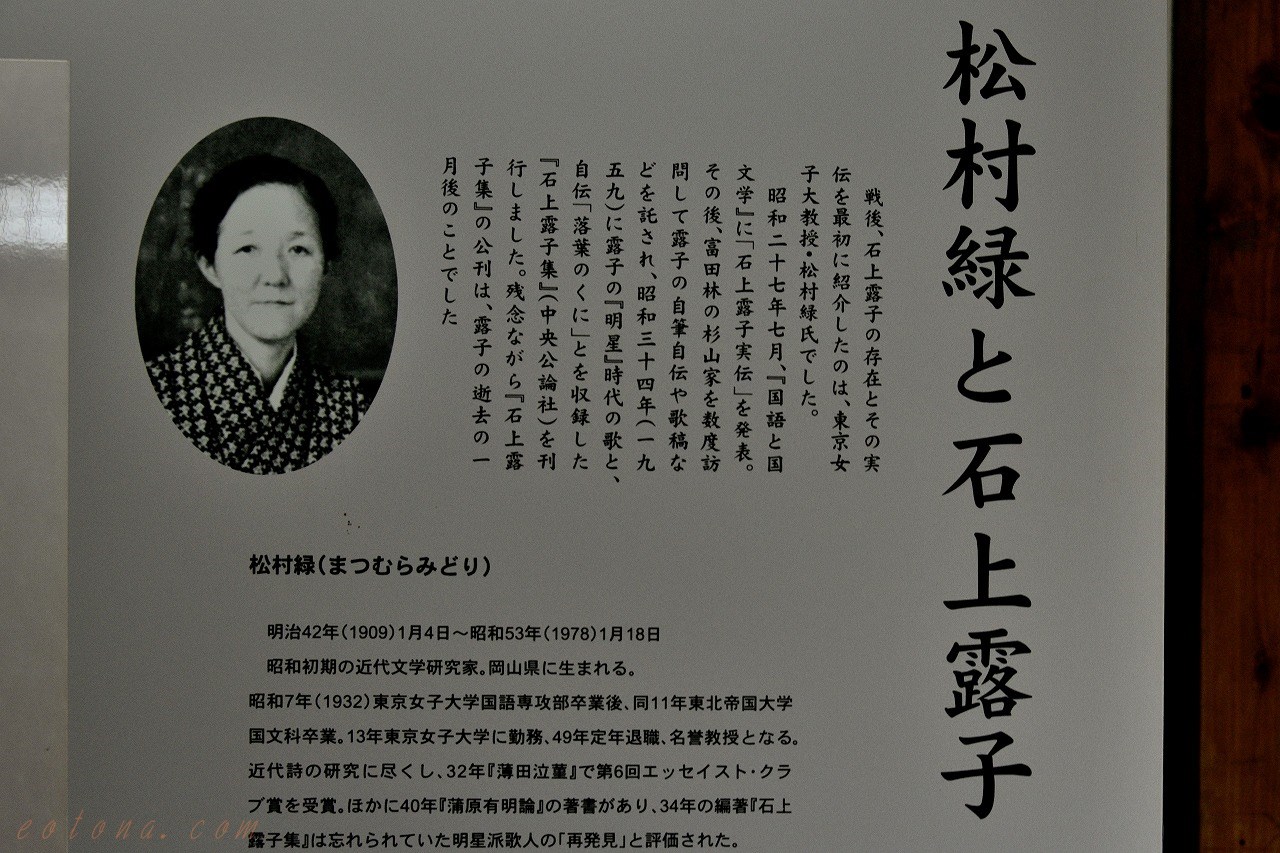 松村緑と石上露子
戦後、石上露子の存在とその実
伝を最初に紹介したのは、東京女
子大教授・松村緑氏でした。
昭和二十七年七月、『国語と国
文学』に「石上露子実伝」を発表。
その後、富田林の杉山家を数度訪
問して露子の自筆自伝や歌稿な
どを託され、昭和三十四年(一九
五九)に露子の『明星』時代の歌と、
自伝「落葉のくに」とを収録した
『石上露子集』(中央公論社)を刊
行しました。残念ながら『石上露
子集』の公刊は、露子の逝去の一
月後のことでした
松村緑(まつむらみどり)
明治42年(1909)1月4日〜昭和53年(1978)1月18日
昭和初期の近代文学研究家。岡山県に生まれる。
昭和7年(1932)東京女子大学国語専攻部卒業後、同11年東北帝国大学
国文科卒業。13年東京女子大学に勤務、49年定年退職、名誉教授となる。
近代詩の研究に尽くし、32年『薄田泣菫』で第6回エッセイスト・クラ
ブ賞を受賞。ほかに40年『蒲原有明論』の著書があり、34年の編著『石上
露子集』は忘れられていた明星派歌人の「再発見」と評価された。
eotona.com